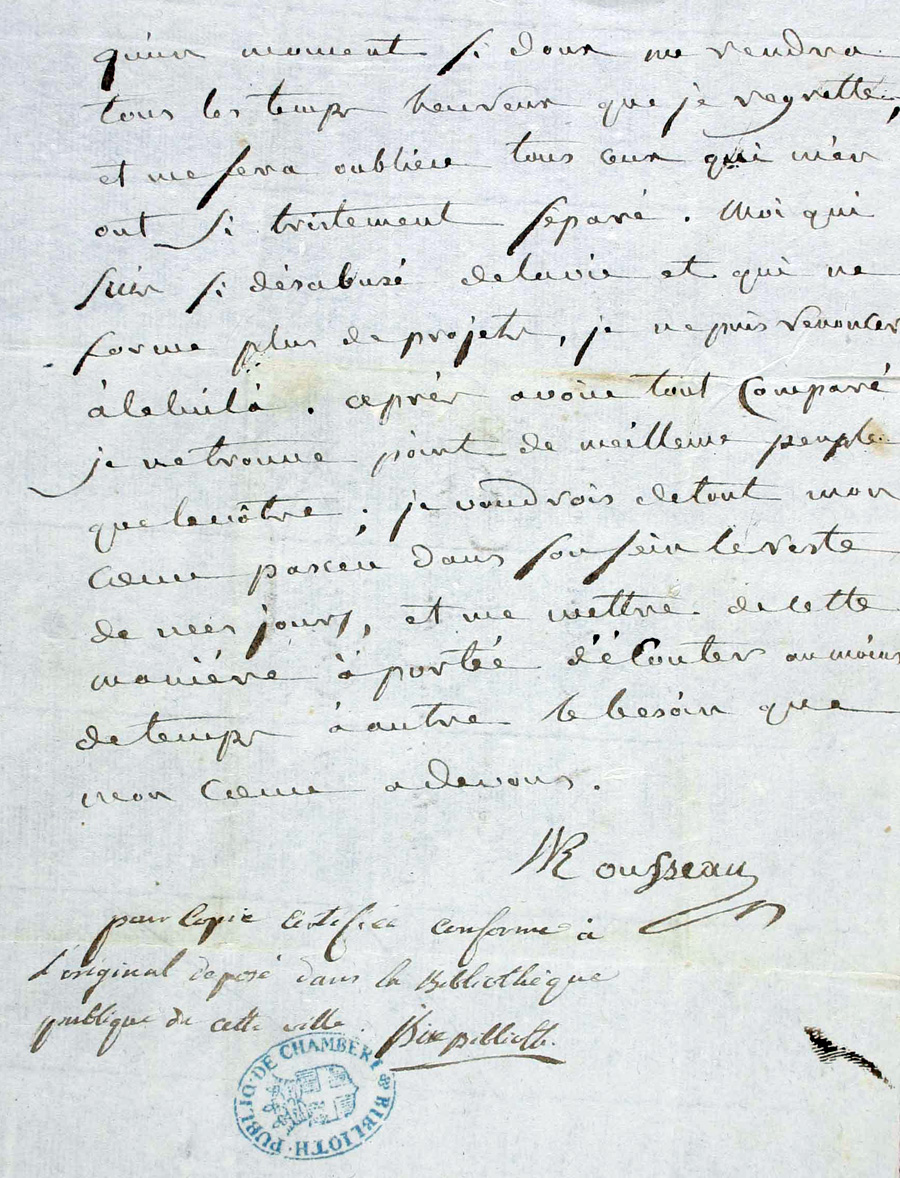 qu'un moment si doux me rendra
tous les temps heureux que je regrette,
et me fera oublier tous ceux qui m'en
ont si tristement séparé. Moi qui
suis si désabusé de la vie et qui ne
forme plus de projets, je ne puis renoncer
à celui là. après avoir tout Comparé
je ne trouve point de meilleure peuple
que le nôtre ; je voudrois de tout mon
Coeur passer dans son sein le reste
de mes jours, et me mettre de cette
maniére à portée d'éCouter au moins
de temps à autre le besoin que
mon Coeur a de vous.
Rousseau
pour Copie certifiée conforme à
l'original deposé dans la Bibliothèque
publique de cette ville.
BIBLIOTH. PUBLIQ. DE CHAMBERY